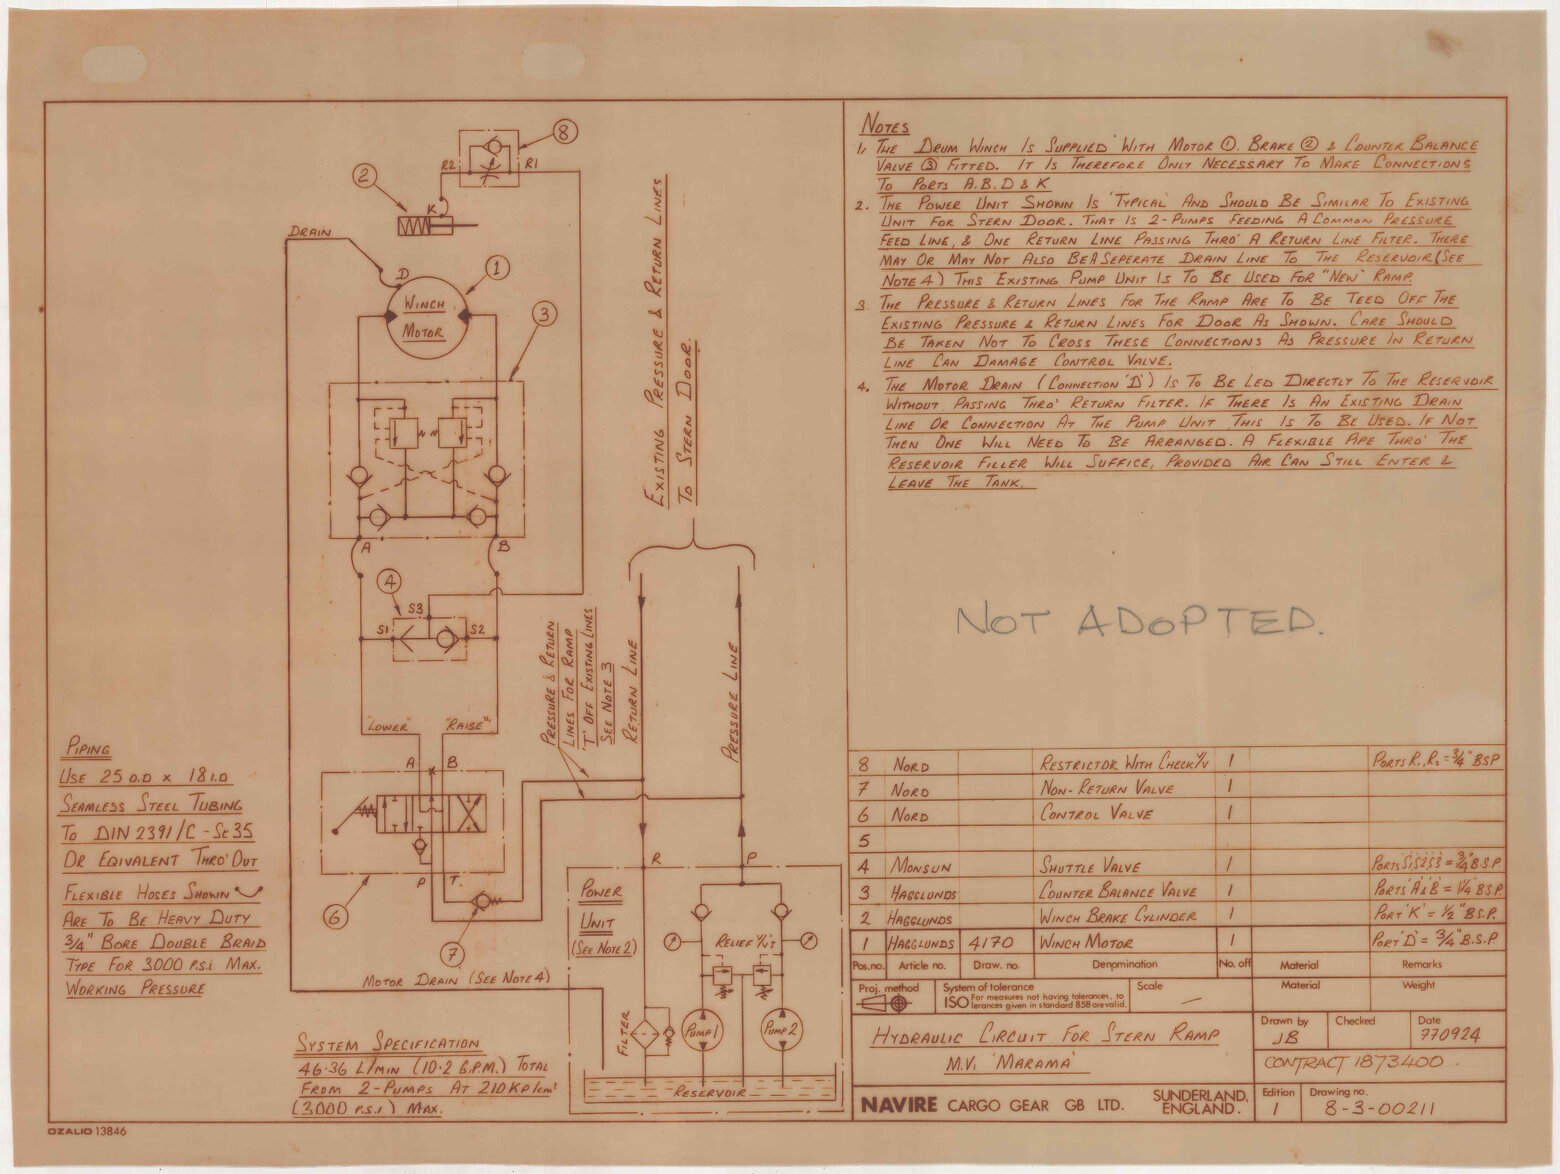 NOTES
1, THE DRUM WINCH IS SUPPLIED WITH MOTOR ①, BRAKE ② & COUNTER BALANCE
VALVE ③ FITTED. IT IS THEREFORE ONLY NECESSARY TO MAKE CONNECTIONS
TO PORTS A.B.D & K
2. THE POWER UNIT SHOWN IS 'TYPICAL' AND SHOULD BE SIMILAR TO EXISTING
UNIT FOR STERN DOOR. THAT IS 2-PUMPS FEEDING A COMMON PRESSURE
FEED LINE, & ONE RETURN LINE PASSING THRO' A RETURN LINE FILTER. THERE
MAY OR MAY NOT ALSO BE A SEPERATE DRAIN LINE TO THE RESERVOIR (SEE
NOTE 4) THIS EXISTING PUMP UNIT IS TO BE USED FOR "NEW" RAMP.
3. THE PRESSURE & RETURN LINES FOR THE RAMP ARE TO BE TEED OFF THE
EXISTING PRESSURE & RETURN LINES FOR DOOR AS SHOWN. CARE SHOULD
BE TAKEN NOT TO CROSS THESE CONNECTIONS AS PRESSURE IN RETURN
LINE CAN DAMAGE CONTROL VALVE.
4. THE MOTOR DRAIN (CONNECTION 'D') IS TO BE LED DIRECTLY TO THE RESERVOIR
WITHOUT PASSING THRO' RETURN FILTER. IF THERE IS AN EXISTING DRAIN
LINE OR CONNECTION AT THE PUMP UNIT THIS IS TO BE USED. IF NOT
THEN ONE WILL NEED TO BE ARRANGED. A FLEXIBLE PIPE THRO' THE
RESERVOIR FILLER WILL SUFFICE, PROVIDED AIR CAN STILL ENTER &
LEAVE THE TANK.
NOT ADOPTED.
8
R2
R1
2
K
DRAIN
D
1
WINCH
MOTOR
3
A
B
4
S3
S1
S2
"LOWER"
"RAISE"
A
B
P
T.
6
7
MOTOR DRAIN (SEE NOTE 4)
EXISTING PRESSURE & RETURN LINES
TO STERN DOOR.
PRESSURE & RETURN
LINES FOR RAMP
'T' OFF EXISTING LINES
SEE NOTE 3
RETURN LINE
PRESSURE LINE
R
P
POWER
UNIT
(SEE NOTE 2)
RELIEF V/V'S
FILTER
PUMP 1
PUMP 2
RESERVOIR
PIPING
USE 25 O.D x 18 I.D
SEAMLESS STEEL TUBING
TO DIN 2391/C - St 35
OR EQUIVALENT THRO' OUT
FLEXIBLE HOSES SHOWN
ARE TO BE HEAVY DUTY
3/4" BORE DOUBLE BRAID
TYPE FOR 3000 P.S.i MAX.
WORKING PRESSURE
SYSTEM SPECIFICATION
46·36 L/MIN (10·2 G.P.M.) TOTAL
FROM 2-PUMPS AT 210 KP/cm²
(3000 P.S.i) MAX.
8 NORD RESTRICTOR WITH CHECK V/V 1 PORTS R1, R2 = 3/4" BSP
7 NORD NON-RETURN VALVE 1
6 NORD CONTROL VALVE 1
5
4 MONSUN SHUTTLE VALVE 1 PORTS S1 S2 S3 = 3/4" B.S.P.
3 HAGGLUNDS COUNTER BALANCE VALVE 1 PORTS 'A & B' = 1 1/4" B.S.P.
2 HAGGLUNDS WINCH BRAKE CYLINDER 1 PORT 'K' = 1/2" B.S.P.
1 HAGGLUNDS 4170 WINCH MOTOR 1 PORT 'D' = 3/4" B.S.P
Pos.no. Article no. Draw. no. Denomination No. off Material Remarks
Proj. method System of tolerance Scale Material Weight
ISO For measures not having tolerances, to
lerances given in standard 858 are valid.
HYDRAULIC CIRCUIT FOR STERN RAMP
M.V. 'MARAMA'
Drawn by Checked Date
JB 770924
CONTRACT 1873400.
NAVIRE CARGO GEAR GB LTD. SUNDERLAND,
ENGLAND.
Edition Drawing no.
1 8-3-00211
OZALID 13846